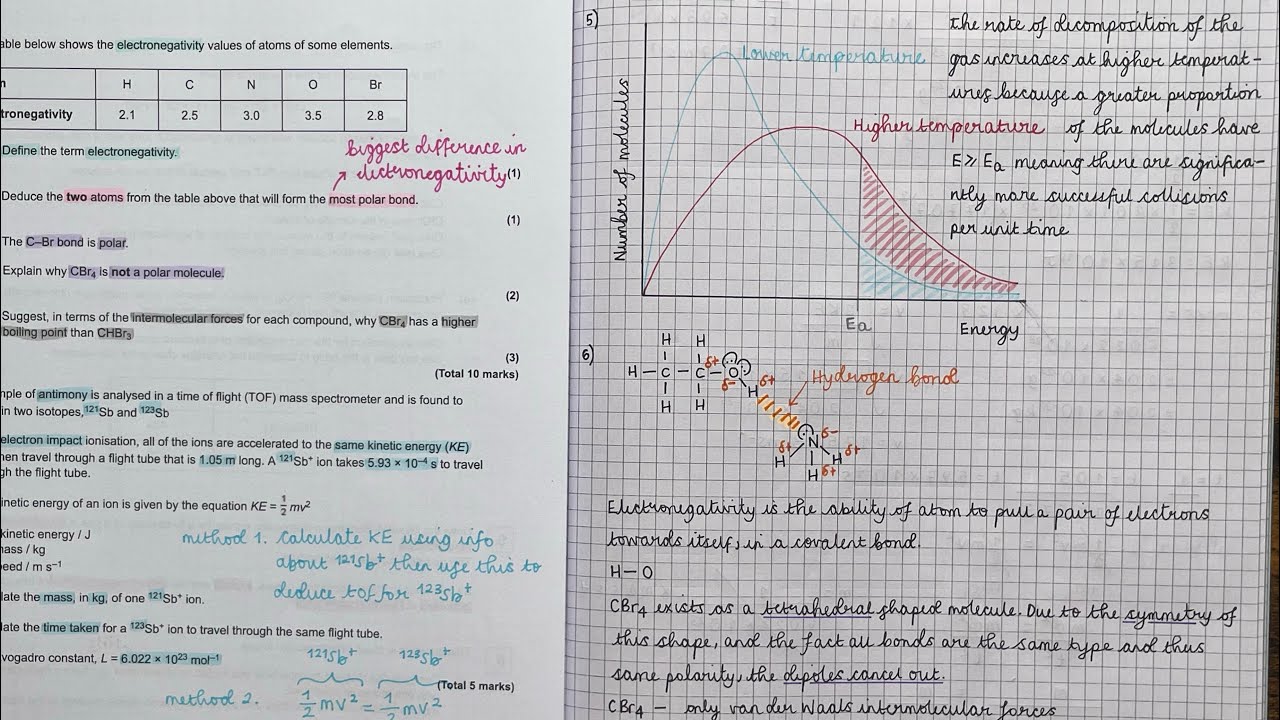 able below shows the electronegativity values of atoms of some elements.
n H C N O Br
tronegativity 2.1 2.5 3.0 3.5 2.8
Biggest difference in
electronegativity
Define the term electronegativity.
(1)
Deduce the two atoms from the table above that will form the most polar bond.
(1)
The C–Br bond is polar.
Explain why CBr₄ is not a polar molecule.
(2)
Suggest, in terms of the intermolecular forces for each compound, why CBr₄ has a higher
boiling point than CHBr₃
(3)
(Total 10 marks)
mple of antimony is analysed in a time of flight (TOF) mass spectrometer and is found to
in two isotopes, ¹²¹Sb and ¹²³Sb
electron impact ionisation, all of the ions are accelerated to the same kinetic energy (KE)
hen travel through a flight tube that is 1.05 m long. A ¹²¹Sb⁺ ion takes 5.93 × 10⁻⁴ s to travel
gh the flight tube.
inetic energy of an ion is given by the equation KE = ½ mv²
kinetic energy / J
mass / kg
eed / m s⁻¹
method 1. calculate KE using info
about ¹²¹Sb⁺ then use this to
deduce tof for ¹²³Sb⁺
late the mass, in kg, of one ¹²¹Sb⁺ ion.
late the time taken for a ¹²³Sb⁺ ion to travel through the same flight tube.
vogadro constant, L = 6.022 × 10²³ mol⁻¹
¹²¹Sb⁺ ¹²³Sb⁺
(Total 5 marks)
method 2. ½mv² = ½mv²
5)
Number of molecules
Lower temperature
Higher temperature
Ea
Energy
The rate of decomposition of the
gas increases at higher temperat-
ures because a greater proportion
of the molecules have
E ≥ Ea meaning there are significa-
ntly more successful collisions
per unit time
6)
H H
H – C – C – O
δ+ δ-
H H
H δ+
Hydrogen bond
N δ-
δ+ H H δ+
H δ+
Electronegativity is the ability of atom to pull a pair of electrons
towards itself, in a covalent bond.
H – O
CBr₄ exists as a tetrahedral shaped molecule. Due to the symmetry of
this shape, and the fact all bonds are the same type and thus
same polarity, the dipoles cancel out.
CBr₄ – only van der Waals intermolecular forces